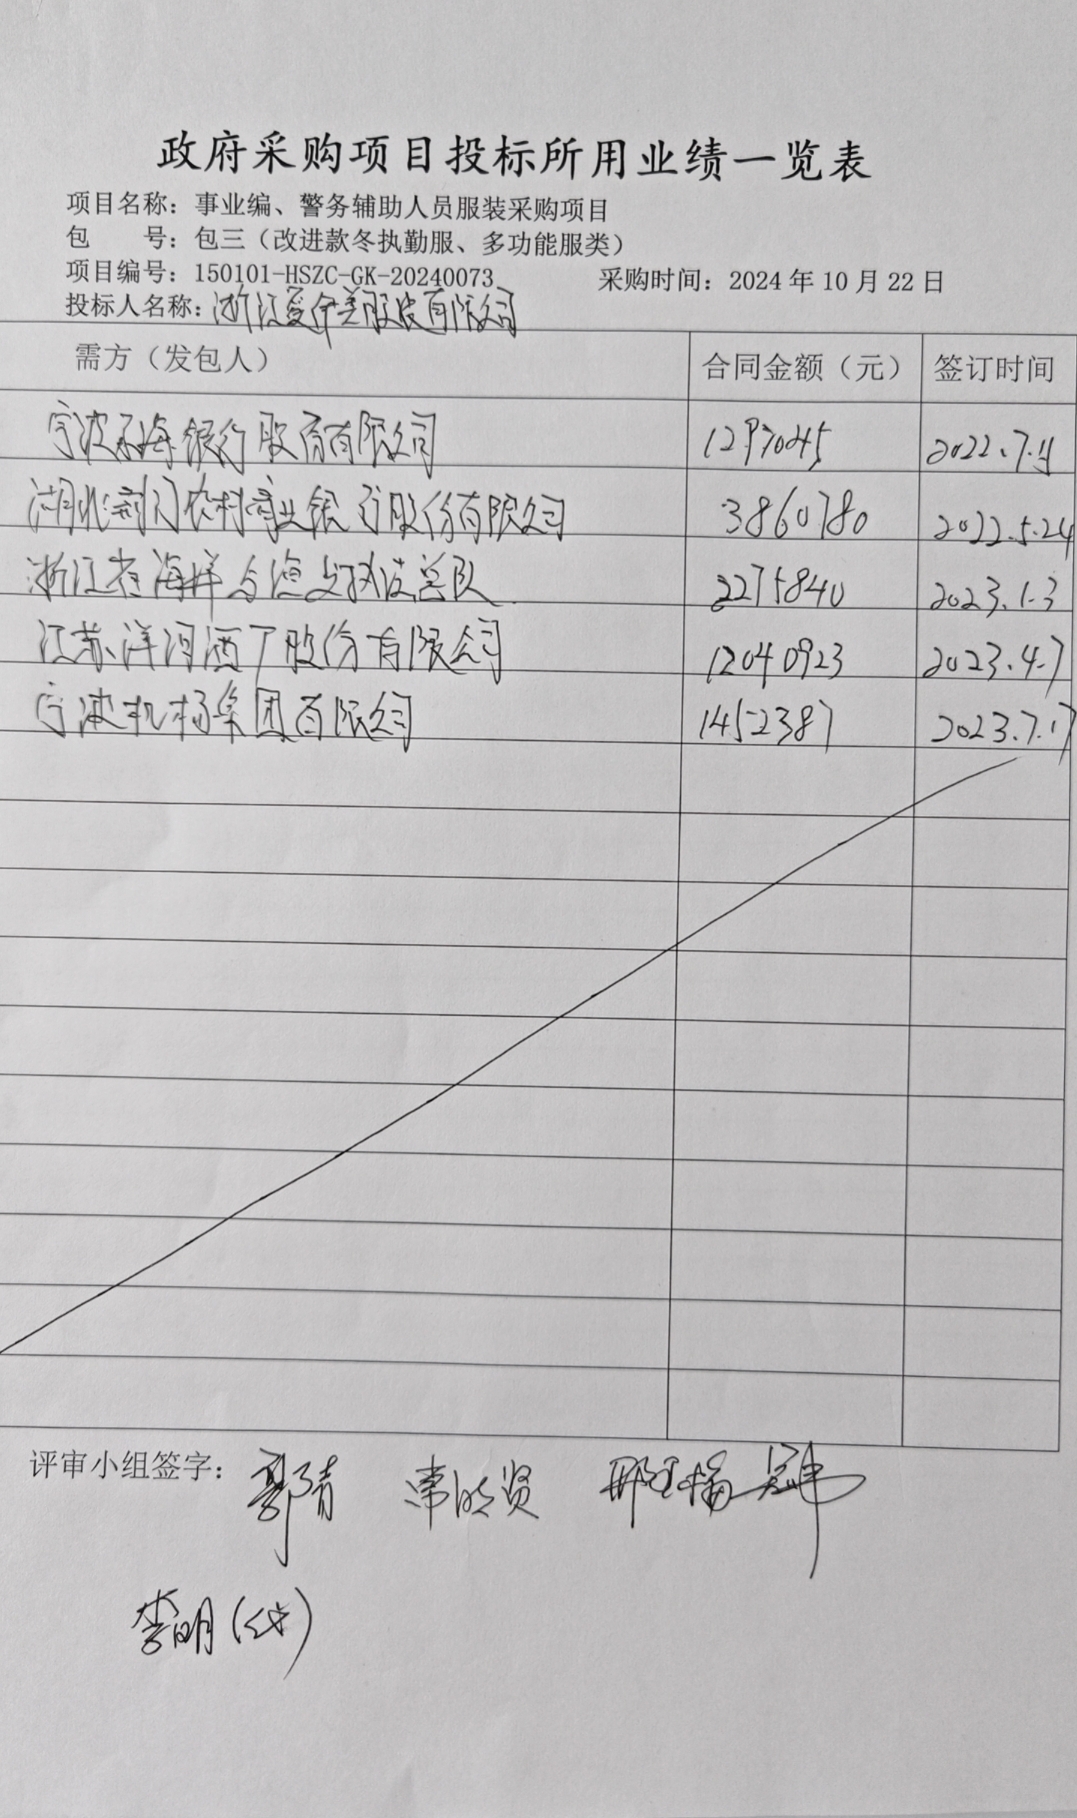 政府采购项目投标所用业绩一览表
项目名称：事业编、警务辅助人员服装采购项目
包 号：包三（改进款冬执勤服、多功能服类）
项目编号：150101-HSZC-GK-20240073 采购时间：2024 年 10 月 22 日
投标人名称：浙江爱伊美服装有限公司
需方（发包人） 合同金额（元） 签订时间
宁波东海银行股份有限公司 1297045 2022.7.
湖北荆门农村商业银行股份有限公司 3860780 2022.5.24
浙江省海洋与渔业执法总队 2275840 2023.1.3
江苏洋河酒厂股份有限公司 12040923 2023.4.7
宁波机场集团有限公司 1452387 2023.7.17
评审小组签字：郭青
李明（代）